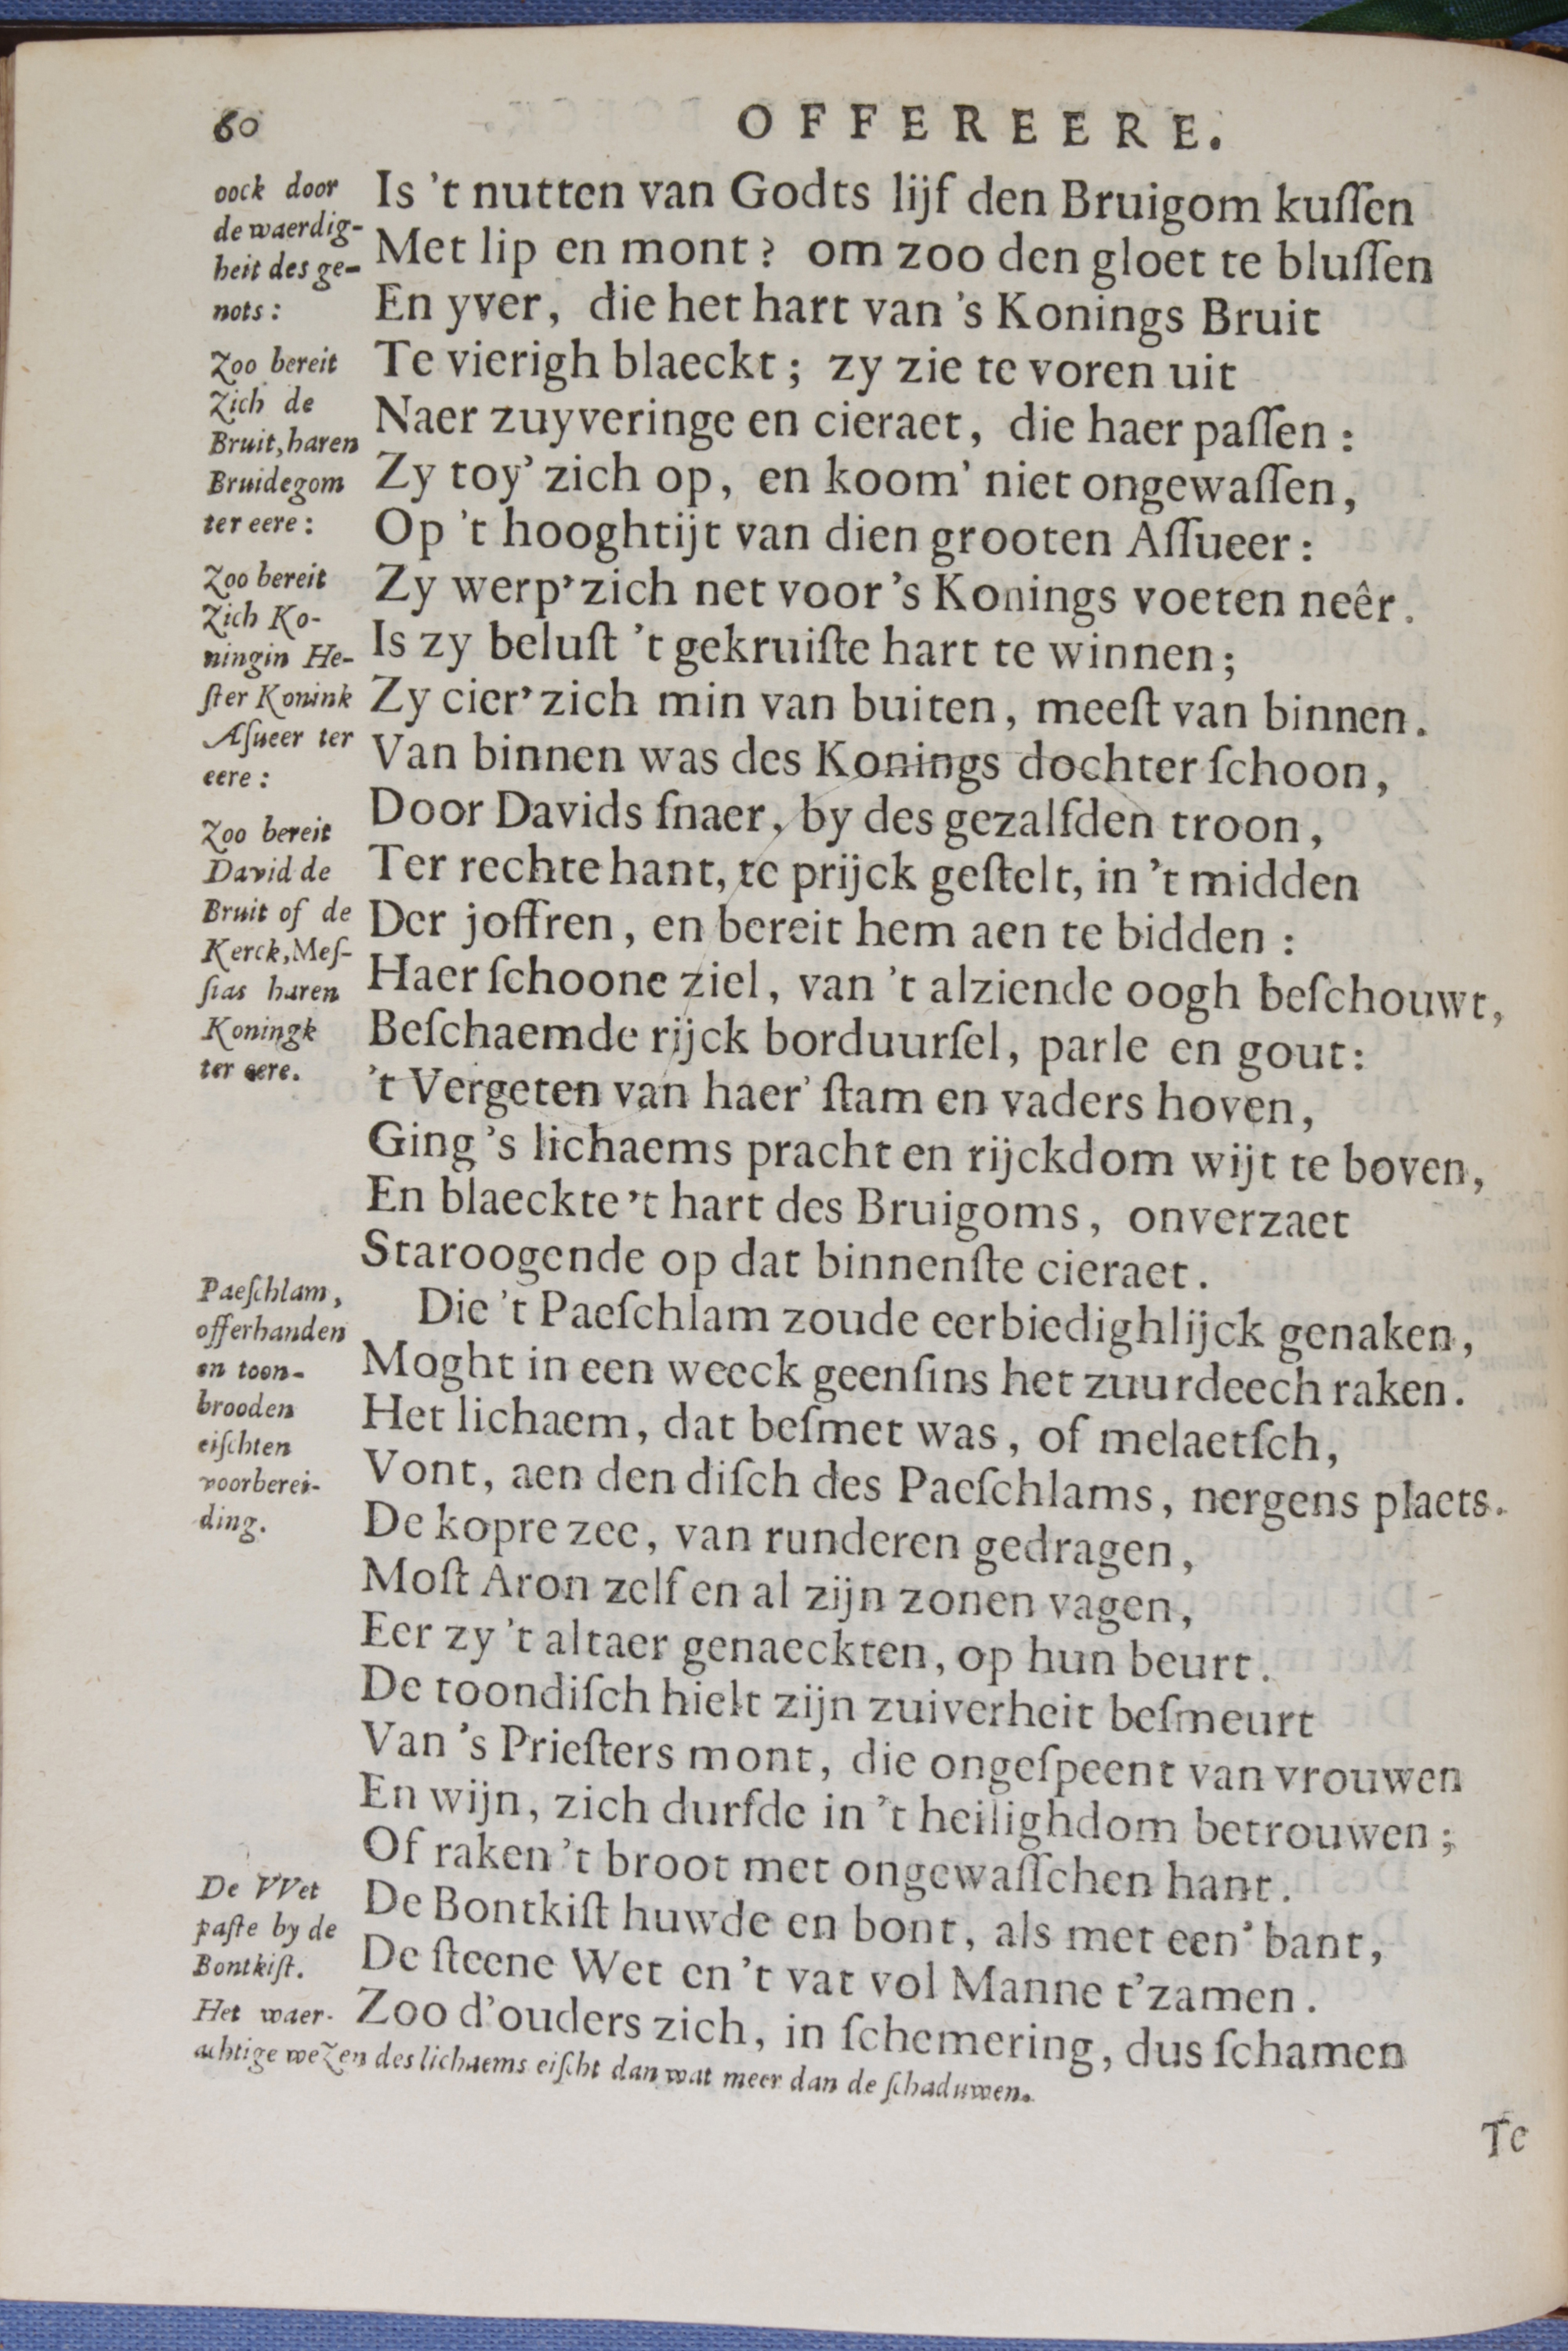 60
OFFEREERE.
oock door
de waerdig-
heit des ge-
nots:
Zoo bereit
Zich de
Bruit, haren
Bruidegom
ter eere:
Zoo bereit
Zich Ko-
ningin He-
ſter Konink
Aſueer ter
eere:
Zoo bereit
David de
Bruit of de
Kerck, Meſ-
ſias haren
Koningk
ter eere.
Is 't nutten van Godts lijf den Bruigom kuſſen
Met lip en mont? om zoo den gloet te bluſſen
En yver, die het hart van 's Konings Bruit
Te vierigh blaeckt; zy zie te voren uit
Naer zuyveringe en cieraet, die haer paſſen:
Zy toy' zich op, en koom' niet ongewaſſen,
Op 't hooghtijt van dien grooten Aſſueer:
Zy werp' zich net voor 's Konings voeten neêr.
Is zy beluſt 't gekruiſte hart te winnen;
Zy cier' zich min van buiten, meeſt van binnen.
Van binnen was des Konings dochter ſchoon,
Door Davids ſnaer, by des gezalfden troon,
Ter rechte hant, te prijck geſtelt, in 't midden
Der joffren, en bereit hem aen te bidden:
Haer ſchoone ziel, van 't alziende oogh beſchouwt,
Beſchaemde rijck borduurſel, parle en gout:
't Vergeten van haer' ſtam en vaders hoven,
Ging 's lichaems pracht en rijckdom wijt te boven,
En blaeckte 't hart des Bruigoms, onverzaet
Staroogende op dat binnenſte cieraet.
Paeſchlam,
offerhanden
en toon-
brooden
eiſchten
voorberei-
ding.
Die 't Paeſchlam zoude eerbiedighlijck genaken,
Moght in een weeck geenſins het zuurdeech raken.
Het lichaem, dat beſmet was, of melaetſch,
Vont, aen den diſch des Paeſchlams, nergens plaets.
De kopre zee, van runderen gedragen,
Moſt Aron zelf en al zijn zonen vagen,
Eer zy 't altaer genaeckten, op hun beurt.
De toondiſch hielt zijn zuiverheit beſmeurt
Van 's Prieſters mont, die ongeſpeent van vrouwen
En wijn, zich durfde in 't heilighdom betrouwen;
Of raken 't broot met ongewaſſchen hant.
De VVet
paſte by de
Bontkiſt.
De Bontkiſt huwde en bont, als met een' bant,
De ſteene Wet en 't vat vol Manne t'zamen.
Zoo d'ouders zich, in ſchemering, dus ſchamen
Het waer-
achtige weZen des lichaems eiſcht dan wat meer dan de ſchaduwen.
Te